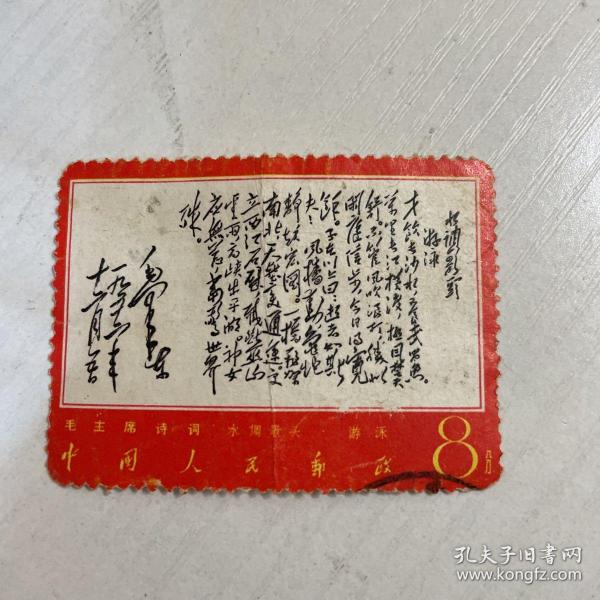 水调歌头
游泳
才饮长沙水,又食武昌鱼。
万里长江横渡,极目楚天
舒。不管风吹浪打,胜似
闲庭信步,今日得宽
馀。子在川上曰:逝者如斯
夫!风樯动,龟蛇
静,起宏图。一桥飞架
南北,天堑变通途。更
立西江石壁,截断巫山
云雨,高峡出平湖。神女
应无恙,当惊世界
殊。
毛泽东
一九五六年
十二月五日
毛主席诗词 水调歌头 游泳
中国人民邮政 8分
孔夫子旧书网
www.kongfz.com